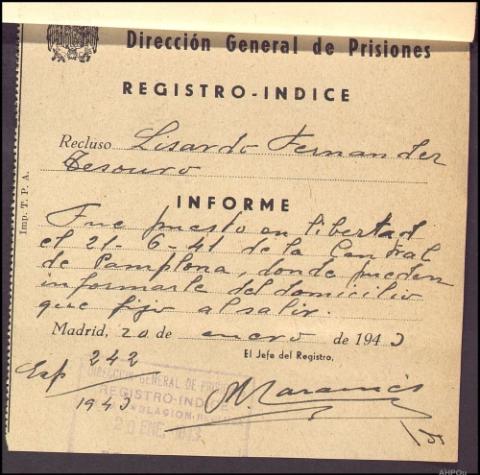 Dirección General de Prisiones
REGISTRO-INDICE
Recluso Lisardo Fernander
Tesouro
INFORME
Fue puesto en libertad
el 21-6-41 de la Central
de Pamplona, donde pueden
informarle del domicilio
que fijo al salir.
Madrid, 20 de enero de 1943
El Jefe del Registro,
Exp 242
1943
DIRECCIÓN GENERAL DE PRISIONES
REGISTRO-INDICE
20 ENE. 1943
Imp. T. P. A.
AHPOu